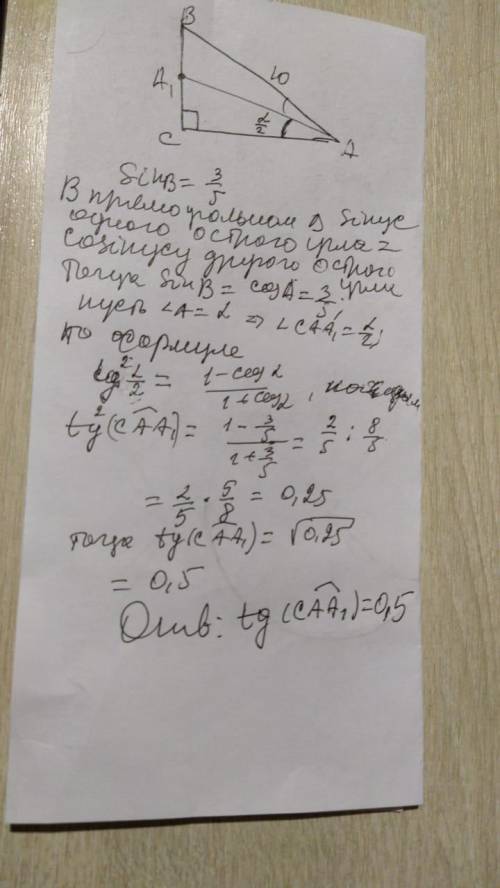 B
A₁
10
α/2
C
A
Sin B = 3/5
В прямоугольном Δ Sinус
одного острого угла =
Coзinусу другого острого
угла
Тогда Sin B = cos A = 3/5.
пусть ∠A = α ⇒ ∠CAA₁ = α/2,
по формуле
tg² α/2 = (1 - cos α)/(1 + cos α), находим
tg²(CAA₁) = (1 - 3/5)/(1 + 3/5) = 2/5 : 8/5
= 2/5 · 5/8 = 0,25
тогда tg(CAA₁) = √0,25
= 0,5
Отв: tg(CAA₁) = 0,5